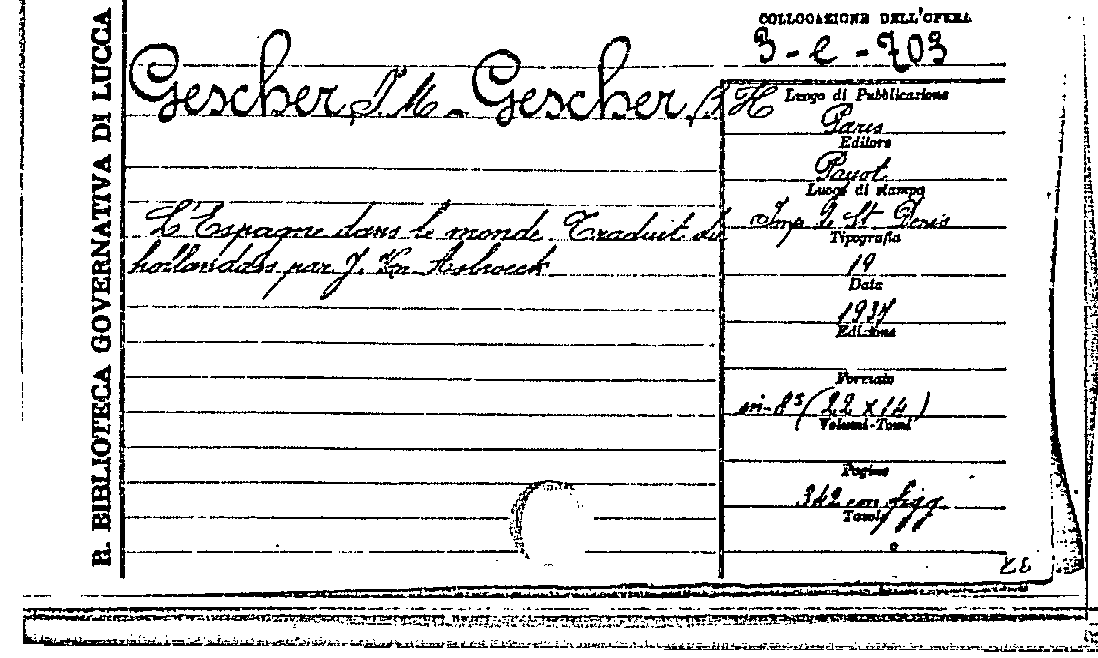 R. BIBLIOTECA GOVERNATIVA DI LUCCA
COLLOCAZIONE DELL'OPERA
3-e-703
Gescher J. M. - Gescher B. H
L'Espagne dans le monde Traduit du
hollandais par J.
Luogo di Pubblicazione
Paris
Editore
Payot
Luogo di stampa
Imp de St Denis
Tipografia
19
Data
1937
Edizione
Formato
in-8° (22 x 14)
Volumi-Tomi
Pagine
342 con figg.
Tavole